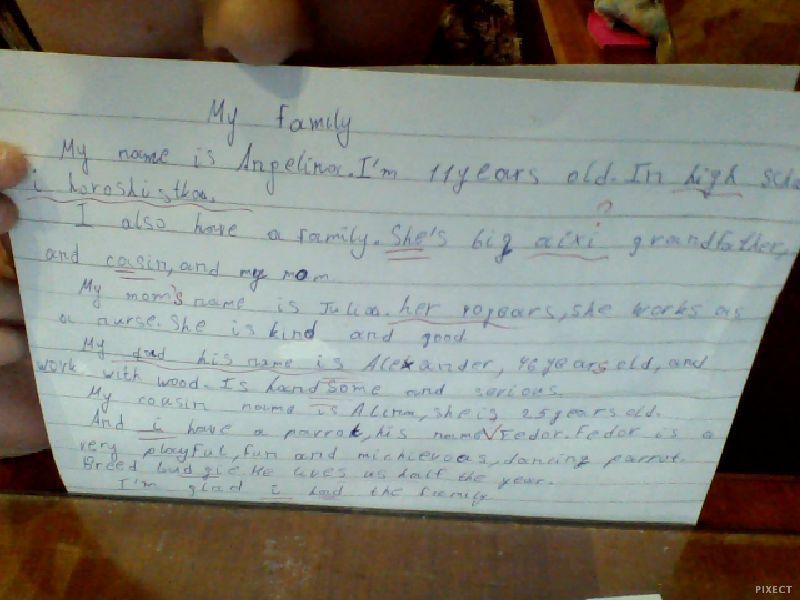 My family
My name is Angelina. I'm 11 years old. In high
i horoshistka.
I also have a family. She's big aixi grandfather,
and casin, and my mom
My mom's name is Julia. her, she works as
a nurse. She is kind and good
My dad his name is Alexander, 46 years old, and
work with wood. Is handsome and serious.
My cousin name is Alina, she is 25 years old.
And i have a parrot, his name V Fedor. Fedor is a
very playful, fun and michievoas, dancing parrot.
Breed budgie. He lives us half the year.
I'm glad i had the family
PIXECT